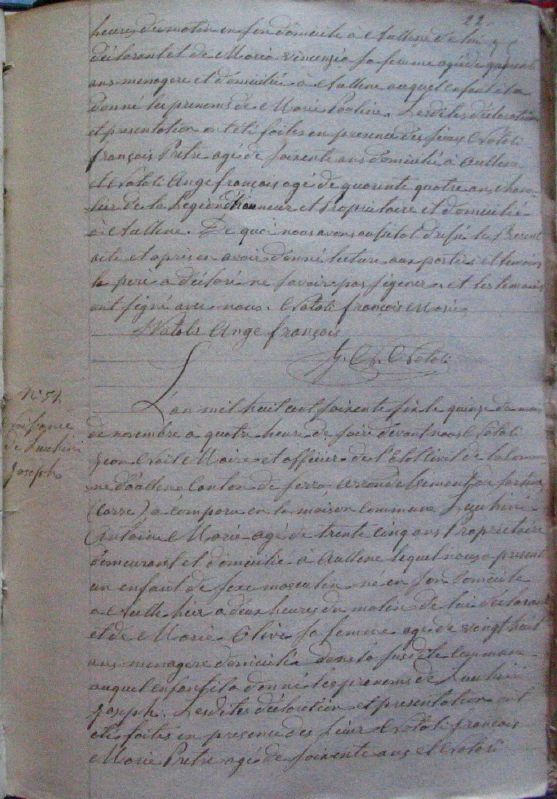 22.
heures du matin en son domicile à Aullene de lui
déclarant et de Marie Vincenzia sa femme agée de quarante
ans menagere et domiciliée à Aullene auquel enfant il a
donné les prenoms de Marie . Lesdites declaration
et presentation ont eté faites en presence des sieurs Natali
françois Pretre agé de soixente ans domicilié à Aullene
et Natali Ange françois agé de quarente quatre ans cheva-
lier de la Legion d'honneur et Propriétaire et domicilié
à Aullene. De quoi nous avons aussitot dressé le Present
acte et apres en avoir donné lecture aux parties et temoins
le pere a déclaré ne savoir pas signer et les temoins
ont signé avec nous. Natali françois Marie
Natali Ange françois
Natali
N° 51.
Naissance
de
Joseph
L'an mil huit cent soixente six le quinze du mois
de novembre a quatre heure de soire devant nous Natali
Jean Noël Maire et officier de l'Etat Civil de la commu-
ne d'aullene Canton de serra arrondissement de sartene
(Corse) a comparu en la maison commune
Antoine Marie agé de trente cinq ans Propriétaire
demeurant et domicilié à Aullene lequel nous a presenté
un enfant de sexe masculin né en son domicile
à hier a deux heures du matin de lui declarant
et de Marie Olive sa femme agée de vingt huit
ans menagere domiciliée dans la susdite commune
auquel enfant il a donné les prenoms de
Joseph. Lesdites déclaration et presentation ont
eté faites en presence des sieur Natali françois
Marie Pretre agé de soixente ans et Natali